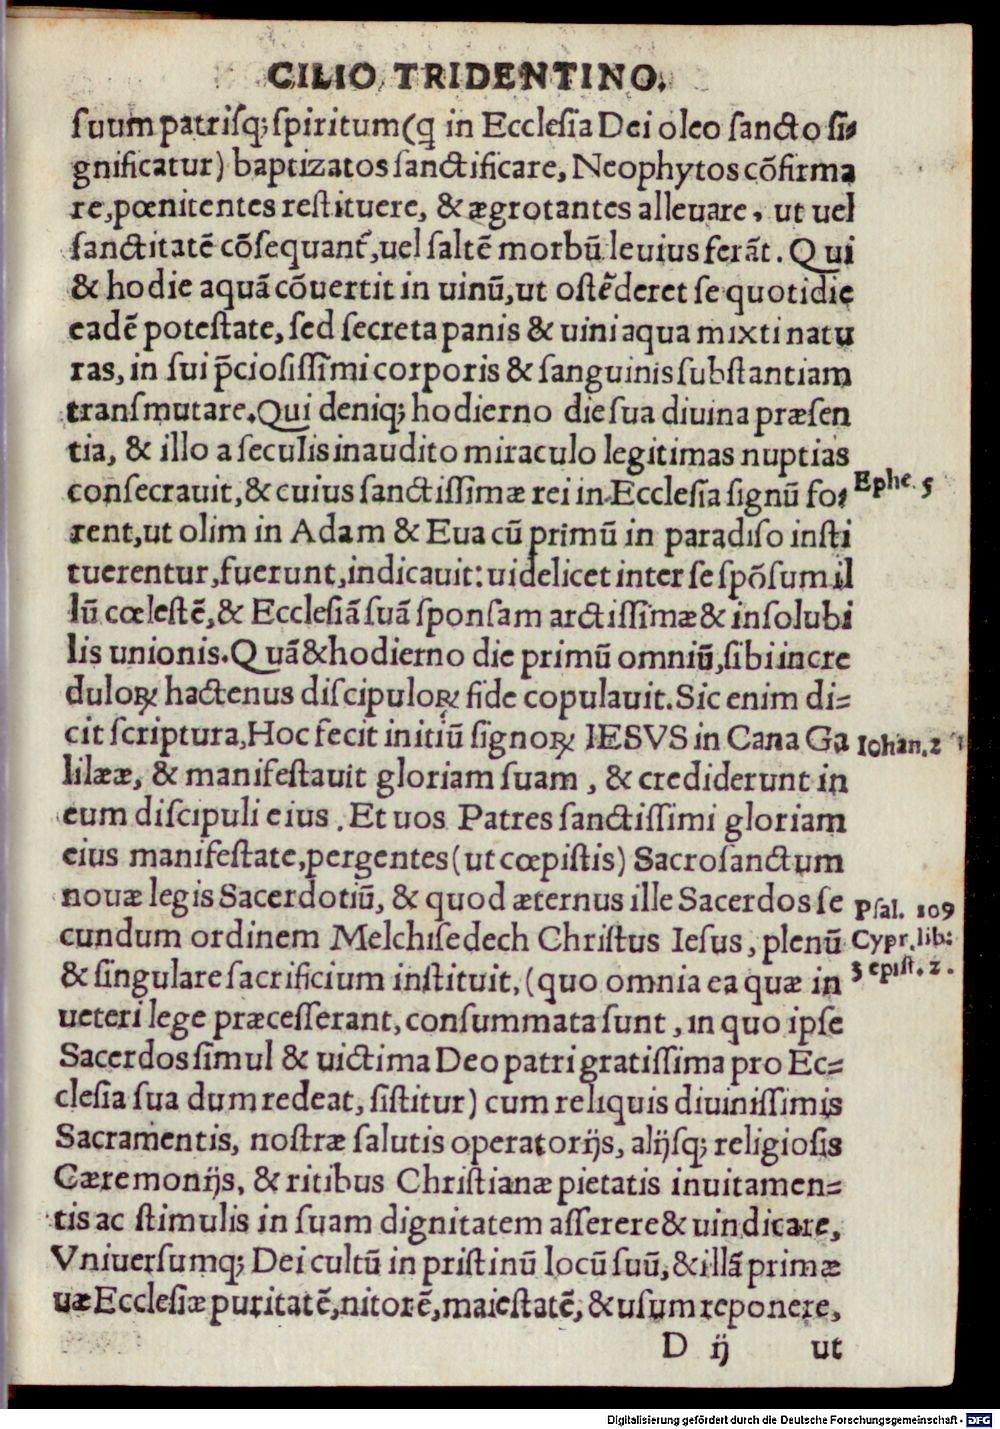 CILIO TRIDENTINO.
ſuum patriſq; ſpiritum (q̃ in Eccleſia Dei oleo ſancto ſi⸗
gnificatur) baptizatos ſanctificare, Neophytos cõfirma
re, pœnitentes reſtituere, & ægrotantes alleuare, ut uel
ſanctitatẽ cõſequant᷑, uel ſaltẽ morbũ leuius ferãt. Qui
& hodie aquã cõuertit in uinũ, ut oſtẽderet ſe quotidie
eadẽ poteſtate, ſed ſecreta panis & uini aqua mixti natu
ras, in ſui p̃cioſiſſimi corporis & ſanguinis ſubſtantiam
tranſmutare. Qui deniq; hodierno die ſua diuina præſen
tia, & illo a ſeculis inaudito miraculo legitimas nuptias
conſecrauit, & cuius ſanctiſſimæ rei in Eccleſia ſignũ fo⸗
Ephe. 5
rent, ut olim in Adam & Eua cũ primũ in paradiſo inſti
tuerentur, fuerunt, indicauit: uidelicet inter ſe ſpõſum il
lũ cœleſtẽ, & Eccleſiã ſuã ſponſam arctiſſimæ & inſolubi
lis unionis. Quã & hodierno die primũ omniũ, ſibi incre
duloꝝ hactenus diſcipuloꝝ fide copulauit. Sic enim di⸗
cit ſcriptura, Hoc fecit initiũ ſignoꝝ IESVS in Cana Ga
Iohan. 2
lilææ, & manifeſtauit gloriam ſuam, & crediderunt in
eum diſcipuli eius. Et uos Patres ſanctiſſimi gloriam
eius manifeſtate, pergentes (ut cœpiſtis) Sacroſanctum
nouæ legis Sacerdotiũ, & quod æternus ille Sacerdos ſe
Pſal. 109
cundum ordinem Melchiſedech Chriſtus Ieſus, plenũ
Cypr. lib:
& ſingulare ſacrificium inſtituit, (quo omnia ea quæ in
3 epiſt. 2.
ueteri lege præceſſerant, conſummata ſunt, in quo ipſe
Sacerdos ſimul & uictima Deo patri gratiſſima pro Ec⸗
cleſia ſua dum redeat, ſiſtitur) cum reliquis diuiniſſimis
Sacramentis, noſtræ ſalutis operatorijs, alijſq; religioſis
Cæremonijs, & ritibus Chriſtianæ pietatis inuitamen⸗
tis ac ſtimulis in ſuam dignitatem aſſerere & uindicare,
Vniuerſumq; Dei cultũ in priſtinũ locũ ſuũ, & illã primæ
uæ Eccleſiæ puritatẽ, nitorẽ, maieſtatẽ, & uſum reponere,
D ij ut
Digitalisierung gefördert durch die Deutsche Forschungsgemeinschaft - DFG